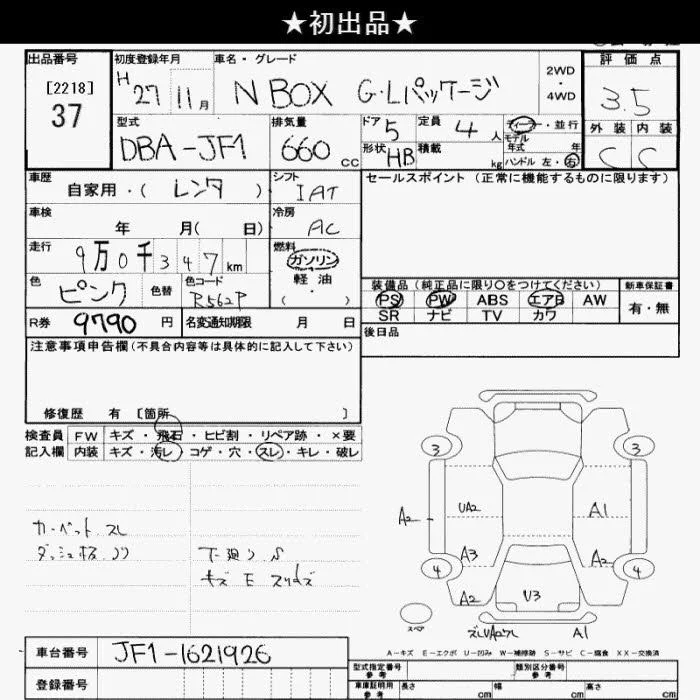 ★初出品★
出品番号 初度登録年月 車名・グレード 2WD・4WD 評価点
[2218]
37
H27 11月 N BOX G・Lパッケージ 3.5
型式 排気量 ドア 定員 ディーラー・並行 外装 内装
DBA-JF1 660 cc 5 4人 モデル年式 年 C C
形状 HB 積載 kg ハンドル 左・右
車歴 シフト セールスポイント (正常に機能するものに限ります)
自家用・(レンタ) IAT
車検 冷房
年 月( 日) AC
走行 燃料
9万0千347km ガソリン・軽油
( ・ )
装備品(純正品に限り○をつけてください) 新車保証書
色 ピンク 色替 色コード R562P PS PW ABS エアB AW 有・無
SR ナビ TV カワ
R券 9790円 名変通知期限 月 日
後日品
注意事項申告欄(不具合内容等は具体的に記入して下さい)
修復歴 有 [箇所 ]
検査員 FW キズ・飛石・ヒビ割・リペア跡・×要
記入欄 内装 キズ・汚レ・コゲ・穴・スレ・キレ・破レ
3 3
A2 UA2 A1
カーペット スレ
A3 A2
下廻り S
4 4
A2 U3
スペア
A1
A-キズ E-エクボ U-凹み W-補修跡 S-サビ C-腐食 XX-交換済
車台番号 JF1-1621926
型式指定番号 参考 類別区分番号 参考
登録番号
車庫証明用 参考 長さ cm 幅 cm 高さ cm